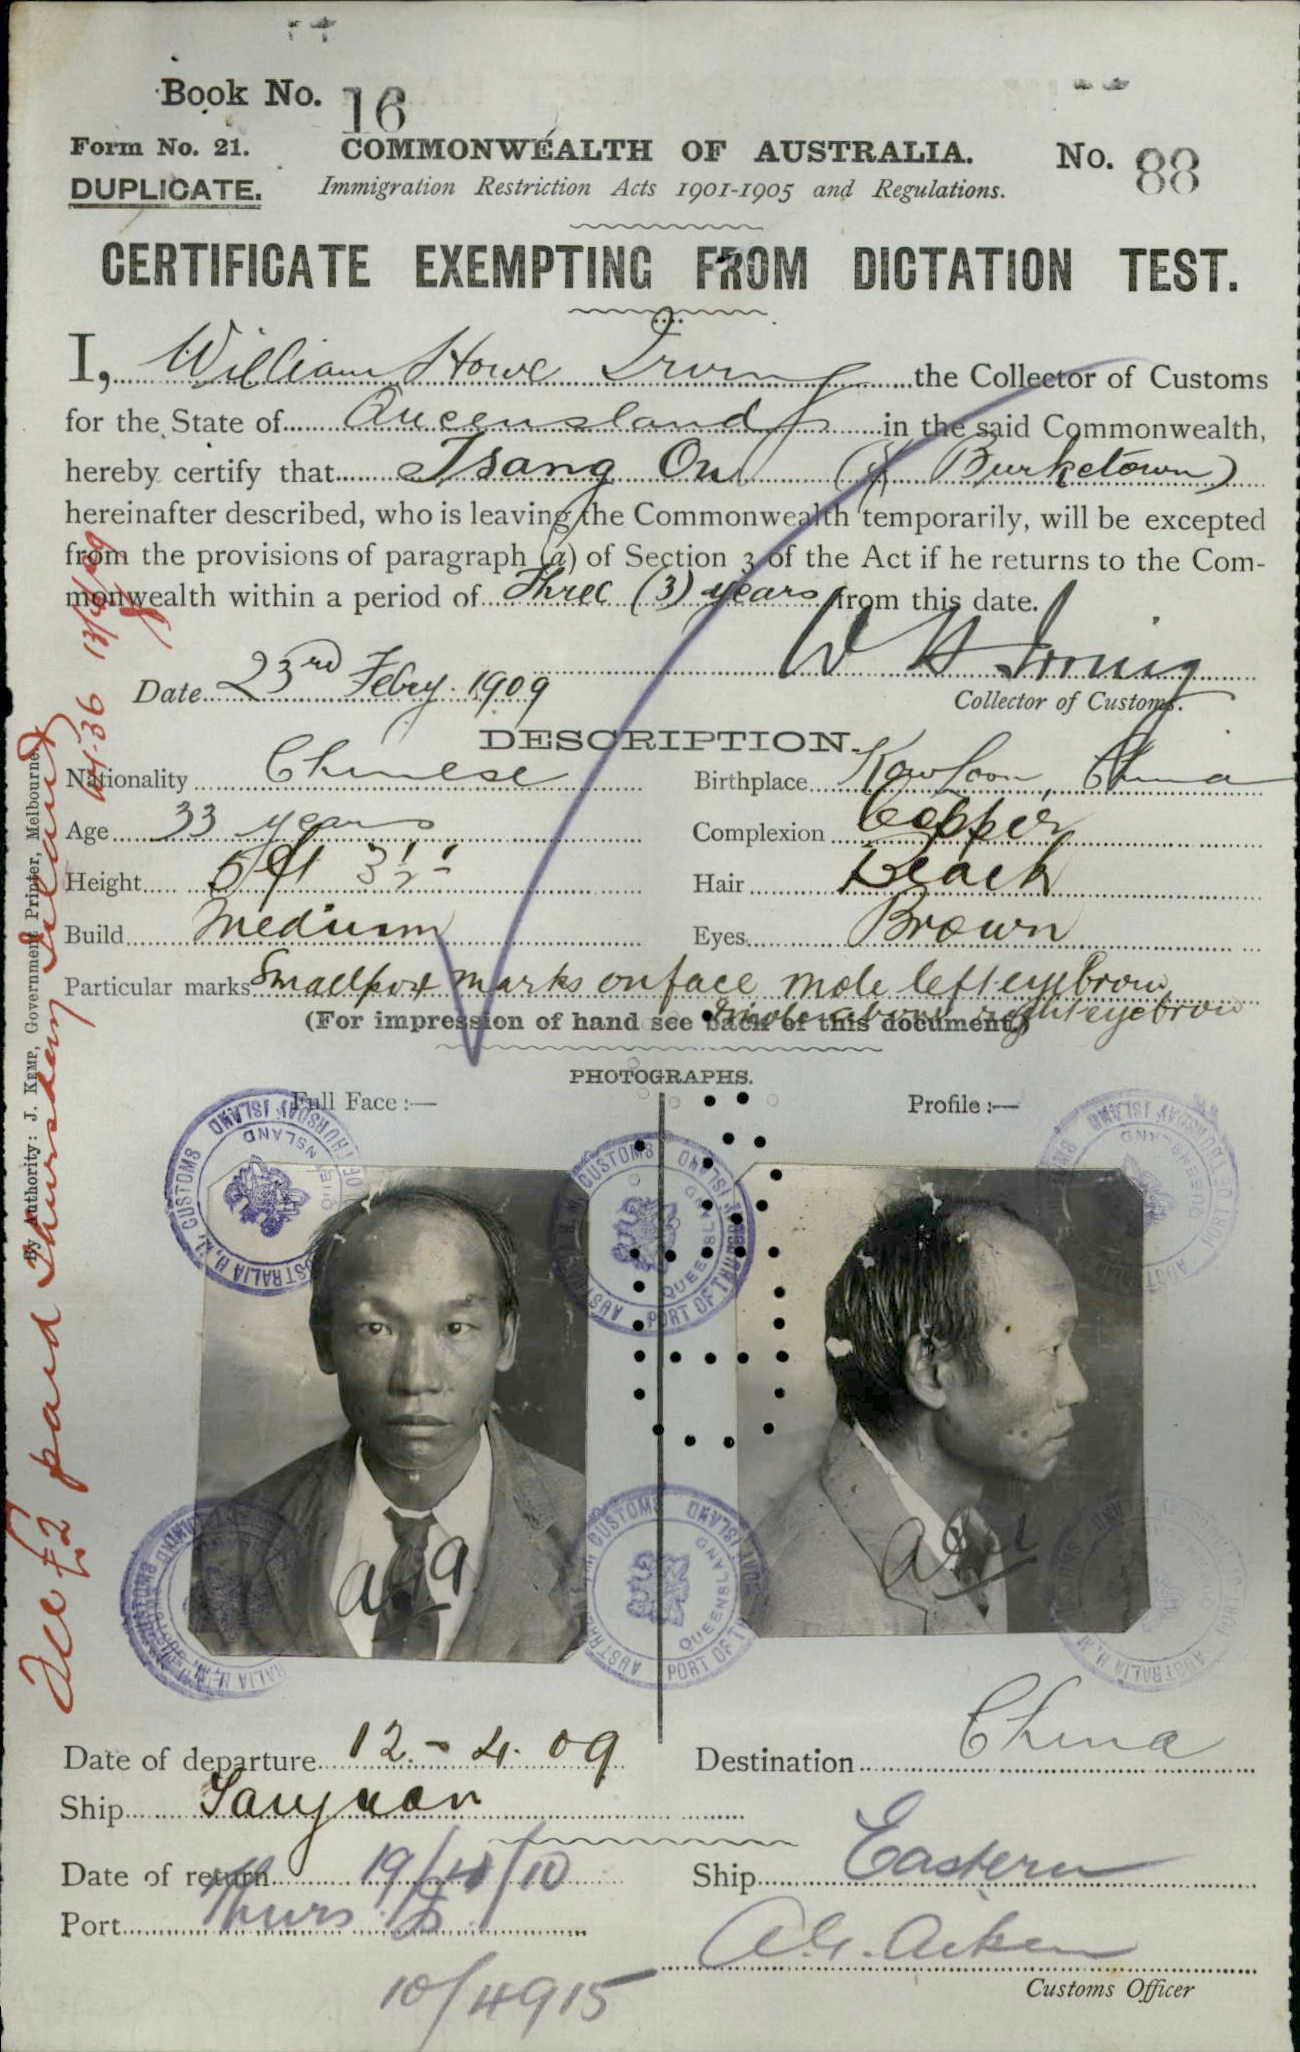 Book No. 16
Form No. 21. COMMONWEALTH OF AUSTRALIA. No. 88
DUPLICATE. Immigration Restriction Acts 1901-1905 and Regulations.
CERTIFICATE EXEMPTING FROM DICTATION TEST.
I, William Howe Irving the Collector of Customs
for the State of Queensland in the said Commonwealth,
hereby certify that Tsang On (of Burketown)
hereinafter described, who is leaving the Commonwealth temporarily, will be excepted
from the provisions of paragraph (a) of Section 3 of the Act if he returns to the Com-
monwealth within a period of Three (3) years from this date.
W H Irving
Date 23rd Febry. 1909 Collector of Customs.
DESCRIPTION.
Nationality Chinese Birthplace Kowloon, China
Age 33 years Complexion Copper
Height 5ft 3½" Hair Black
Build Medium Eyes Brown
Particular marks Smallpox marks on face mole left eyebrow
mole above right eyebrow
(For impression of hand see back of this document.)
PHOTOGRAPHS.
Full Face :— Profile :—
AUSTRALIA H.M. CUSTOMS PORT OF THURSDAY ISLAND QUEENSLAND
Date of departure 12.-4.09 Destination China
Ship Taiyuan
Date of return 19/10/10 Ship Eastern
Port Thurs. Is.
A.G. Aiken
Customs Officer
10/4915
By Authority: J. KEMP, Government Printer, Melbourne.
£2 paid Thursday Island